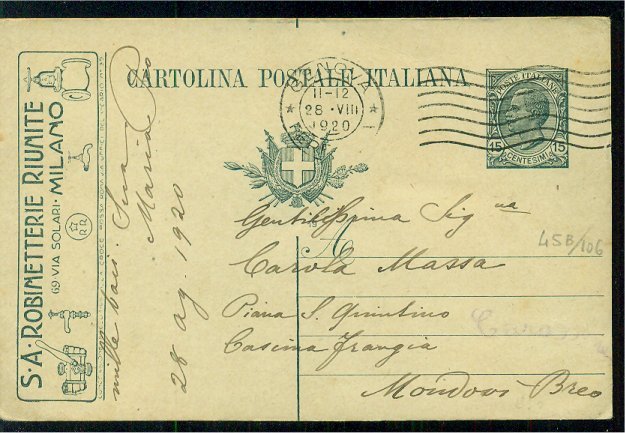 CARTOLINA POSTALE ITALIANA
S.A. ROBINETTERIE RIUNITE
69 VIA SOLARI · MILANO
RR
GENOVA
11-12
28 · VIII
1920
POSTE ITALIANE
15 15
CENTESIMI
Gentilissima Sig na
A
Carola Massa
Piana S. Quintino
Cascina Frangia
Mondovi Breo
45B/106
mille baci. Sua
Maria
28 ag. 1920